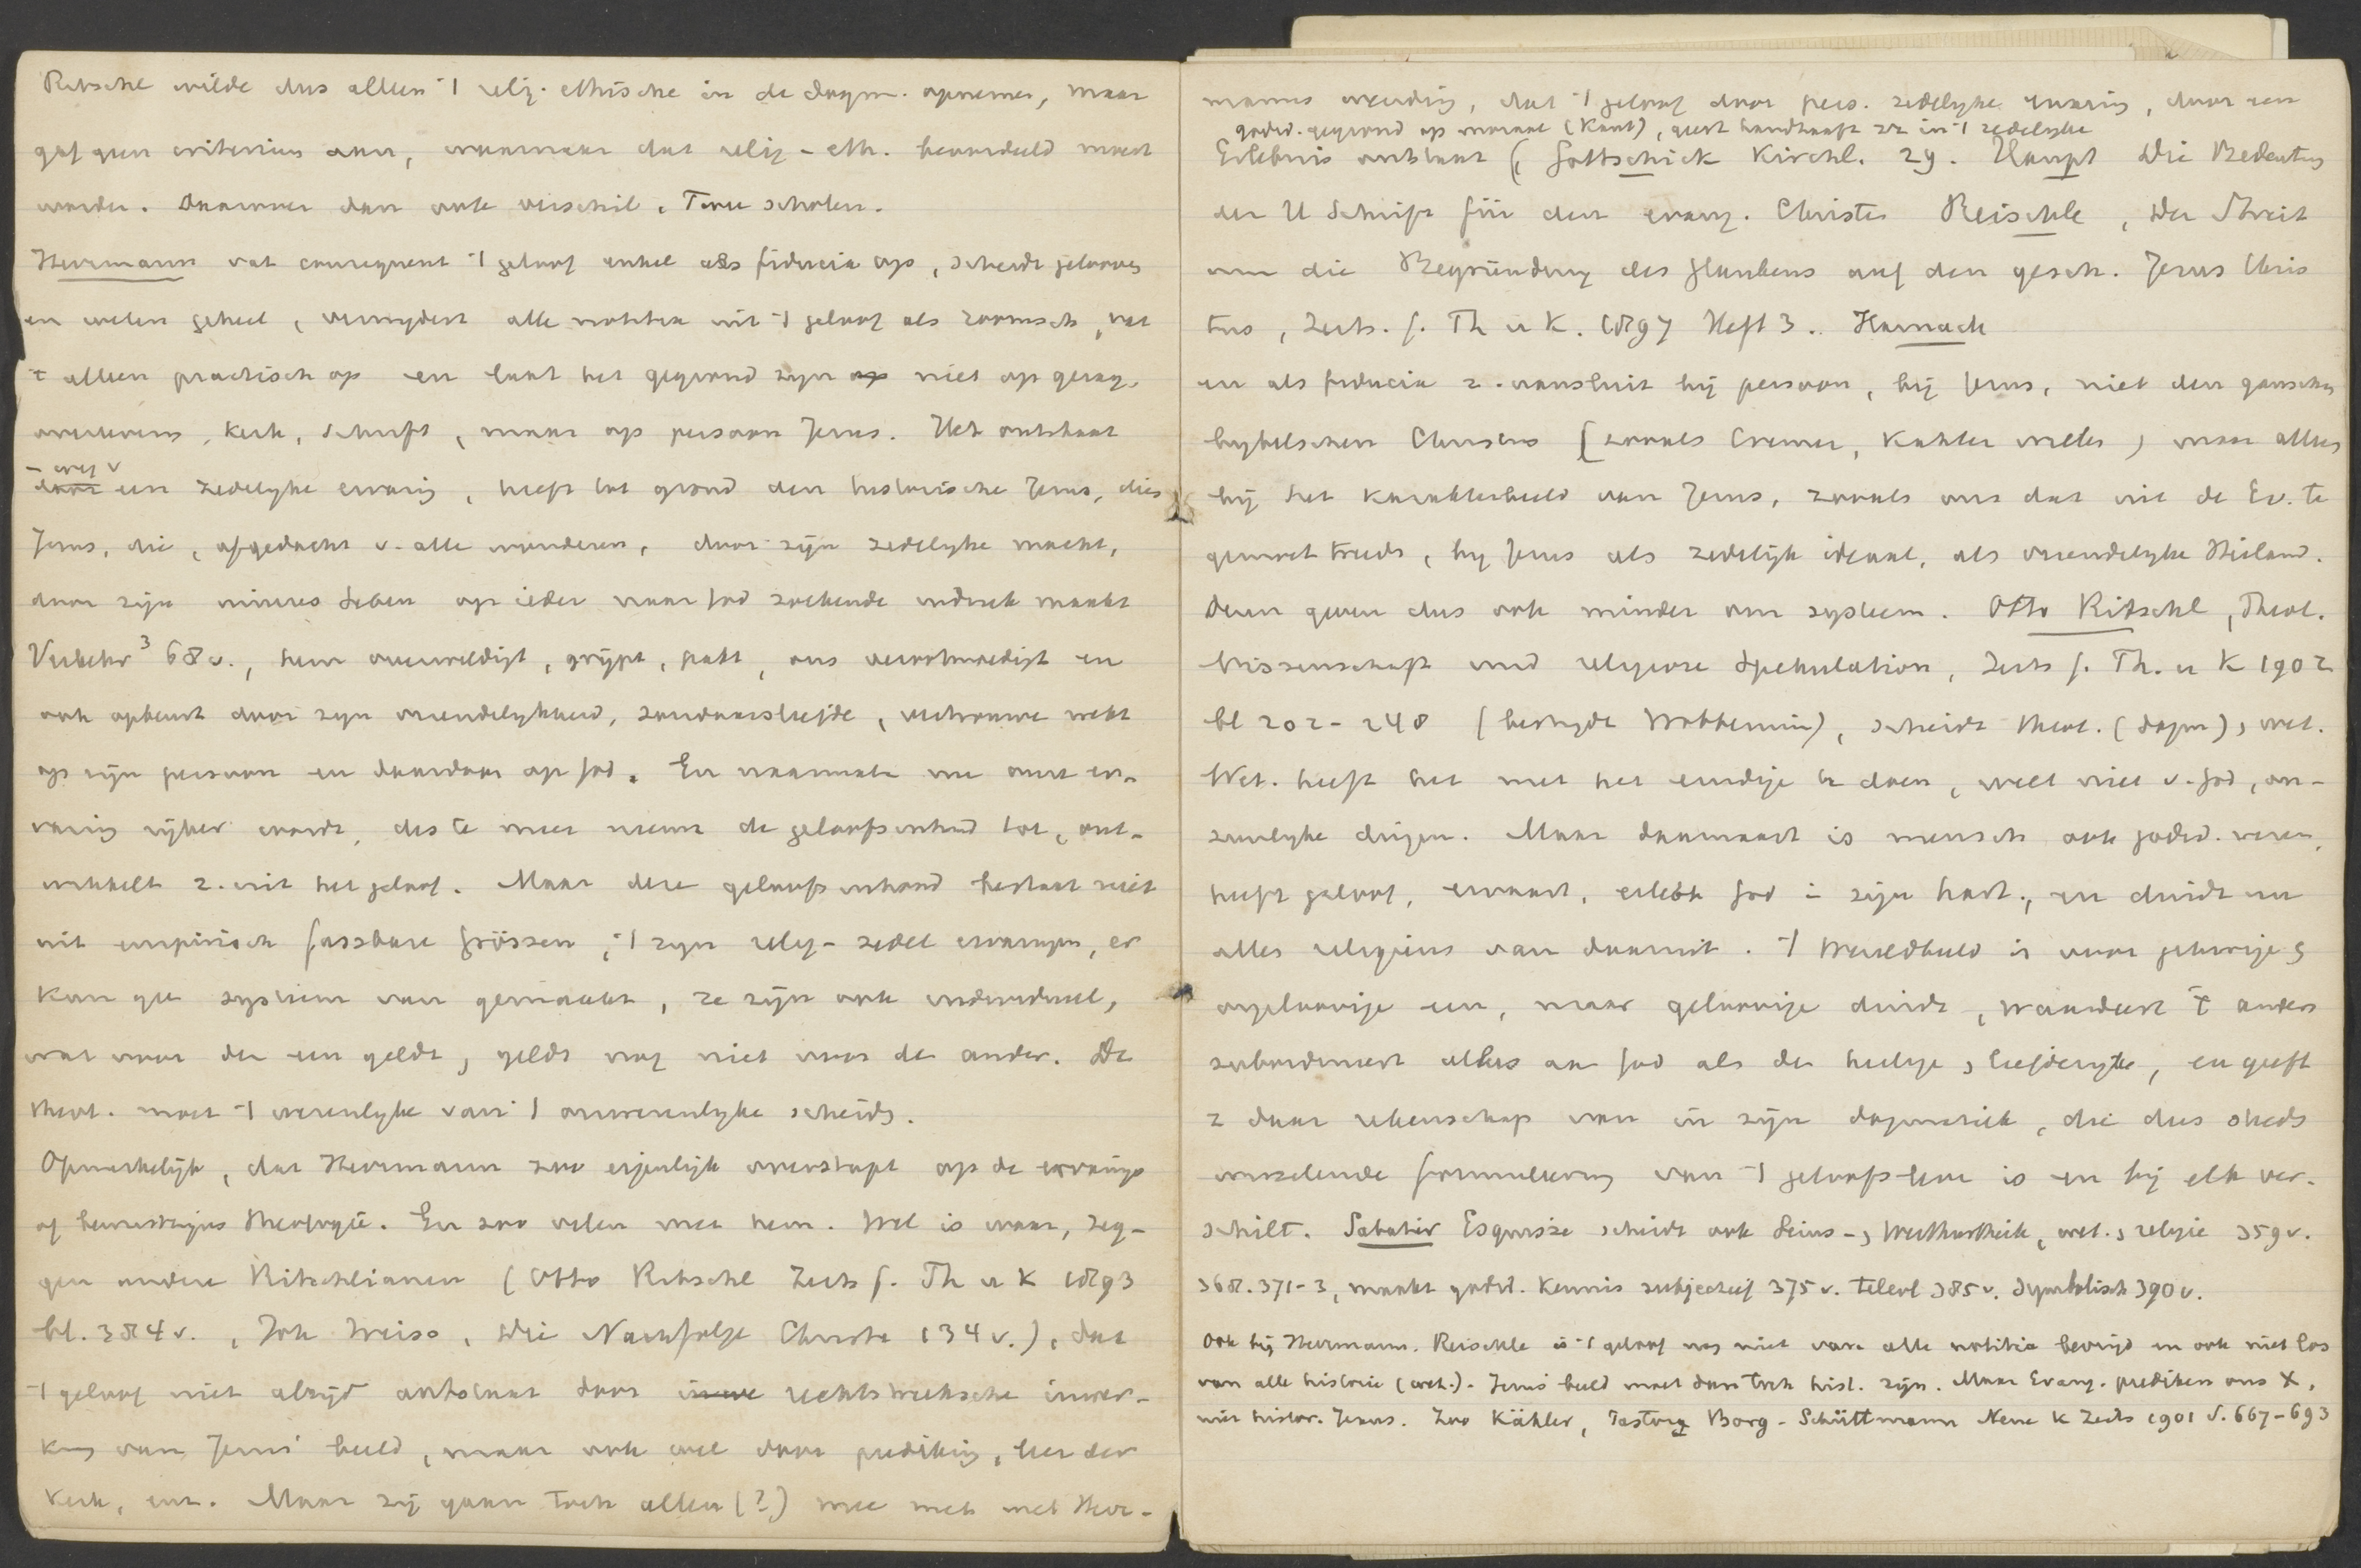 Ritschl wilde dus alleen 't relig. ethische in de dogm. opnemen, maar
gaf geen criterium aan, waarnaar dat relig-eth. beoordeeld moest
worden. Daarover dan ook verschil. Twee scholen.
Herrmann vat consequent 't geloof enkel als fiducia op, scheidt gelooven
en weten geheel, verwydert alle notitia uit 't geloof als roomsch, vat
't alleen practisch op en laat het gegrond zyn op niet op getuig.
overlevering, kerk, schrift, maar op persoon Jesus. Het ontstaat
– weg v
door een zedelyke ervaring, heeft tot grond den historische Jesus, dies
Jesus, die, afgedacht v. alle wonderen, door zijn zedelyke macht,
door zijn inneres Leben op ieder naar God zoekende indruk maakt
Verkehr³ 68v., hem overweldigt, grijpt, pakt, ons verootmoedigt en
ook opbeurt door zyn vriendelykheid, zondaarsliefde, vertrouwen wekt
op zijn persoon en daardoor op God. En naarmate nu onze er-
varing rijker wordt, des te meer neemt de geloofsinhoud toe, ont-
wikkelt z. uit het geloof. Maar deze geloofsinhoud bestaat niet
uit empirisch fassbare Grössen, 't zyn relig-zedel ervaringen, er
kan geen systeem van gemaakt, ze zijn ook individueel,
wat voor den een geldt, geldt nog niet voor de ander. De
theol. moet 't wezenlyke van 't onwezenlyke scheiden.
Opmerkelijk, dat Herrmann zoo eigenlijk overstapt op de ervarings
of bewustzijns theologie. En zoo velen met hem. Wel is waar, zeg-
gen andere Ritschlianen (Otto Ritschl Zeits f. Th u K 1893
bl. 384v., Joh Weiss, Die Nachfolge Christi 134v.), dat
't geloof niet altijd ontstaat door rechtstreeksche inwer-
king van Jesus' beeld, maar ook wel door prediking, leer der
kerk, enz. Maar zij gaan toch allen (?) mee met Herr-
manns wending, dat 't geloof door pers. zedelyke ervaring, door een
godsd. gegrond op moraal (Kant), handhaaft in 't zedelyke
Erlebnis ontstaat (Gottschick Kirchl. 29. Haupt Die Bedeutung
der H Schrift für den evang. Christen Reischle, Der Streit
um die Begründung des Glaubens auf den gesch. Jesus Chris
tus, Zeits. f. Th u K. 1897 Heft 3.. Harnack
en als fiducia z. aansluit bij persoon, bij Jesus, niet den ganschen
bybelschen Christus (zooals Cremer, Kähler willen) maar alleen
bij het karakterbeeld van Jesus, zooals ons dat uit de Ev. te
gemoet treedt, by Jesus als zedelijk ideaal, als vriendelyke Heiland.
Dezen geven dus ook minder om systeem. Otto Ritschl, Theol.
Wissenschaft und religiöse Spekulation, Zeits f. Th. u K 1902
bl 202-248 (bestrydt Wobbermin), scheidt theol. (dogm), wet.
Wet. heeft het met het eindige te doen, weet niet v. God, on-
zienlyke dingen. Maar daarnaast is mensch ook godsd. wezen,
heeft geloof, ervaart, erlebt God in zijn hart, en duidt nu
alles religieus van daaruit. 't Wereldbeeld is voor geloovige &
ongeloovige een, maar geloovige duidt, waardeert 't anders
subordineert alles aan God als de heilige, liefderyke, en geeft
z daar rekenschap van in zijn dogmatiek, die dus steeds
wisselende formulering van 't geloofsleven is en bij elk ver-
schilt. Sabatier Esquisse scheidt ook Seins-, Werthurtheile, wet., religie 359v.
368. 371-3, maakt godsd. kennis subjectief 375v. teleol 385v. symbolisch 390v.
Ook bij Herrmann. Reischle is 't geloof nog niet van alle notitia bevrijd en ook niet los
van alle historie (wet.). Jesus' beeld moet dan toch hist. zijn. Maar Evang. prediken ons X,
niet histor. Jesus. Zoo Kähler, Pastor Borg-Schüttmann Neue K Zeits 1901 S. 667-693